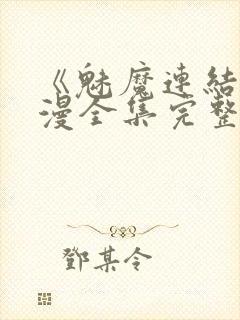 《魅魔連結
漫全集完整
鄧某令